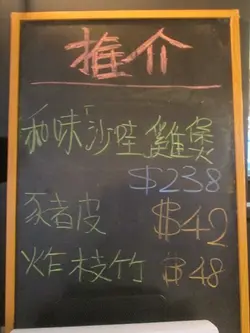 推介
和味沙哇雞煲
$238
豬皮 $42
炸枝竹 $48